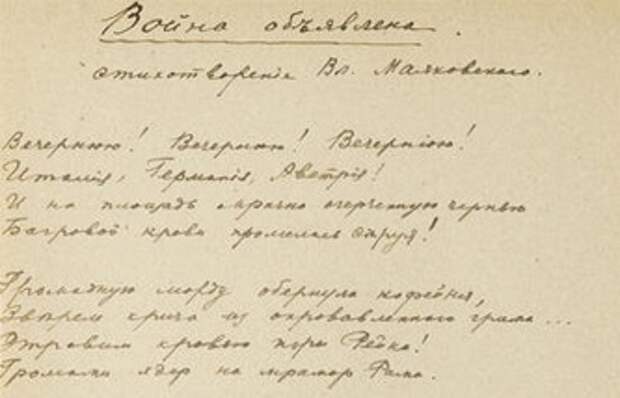 Война объявлена.
стихотворенiе Вл. Маяковского.
Вечернюю! Вечернюю! Вечернюю!
Италiя, Германiя, Австрiя!
И на площадь мрачно очерченую чернью
Багровой крови пролилась струя!
Громадную морду обернула кофейня,
Зверем крича из окровавленного грима...
Отравим кровью игры Рейна!
Громами ядер на мрамор Рима.